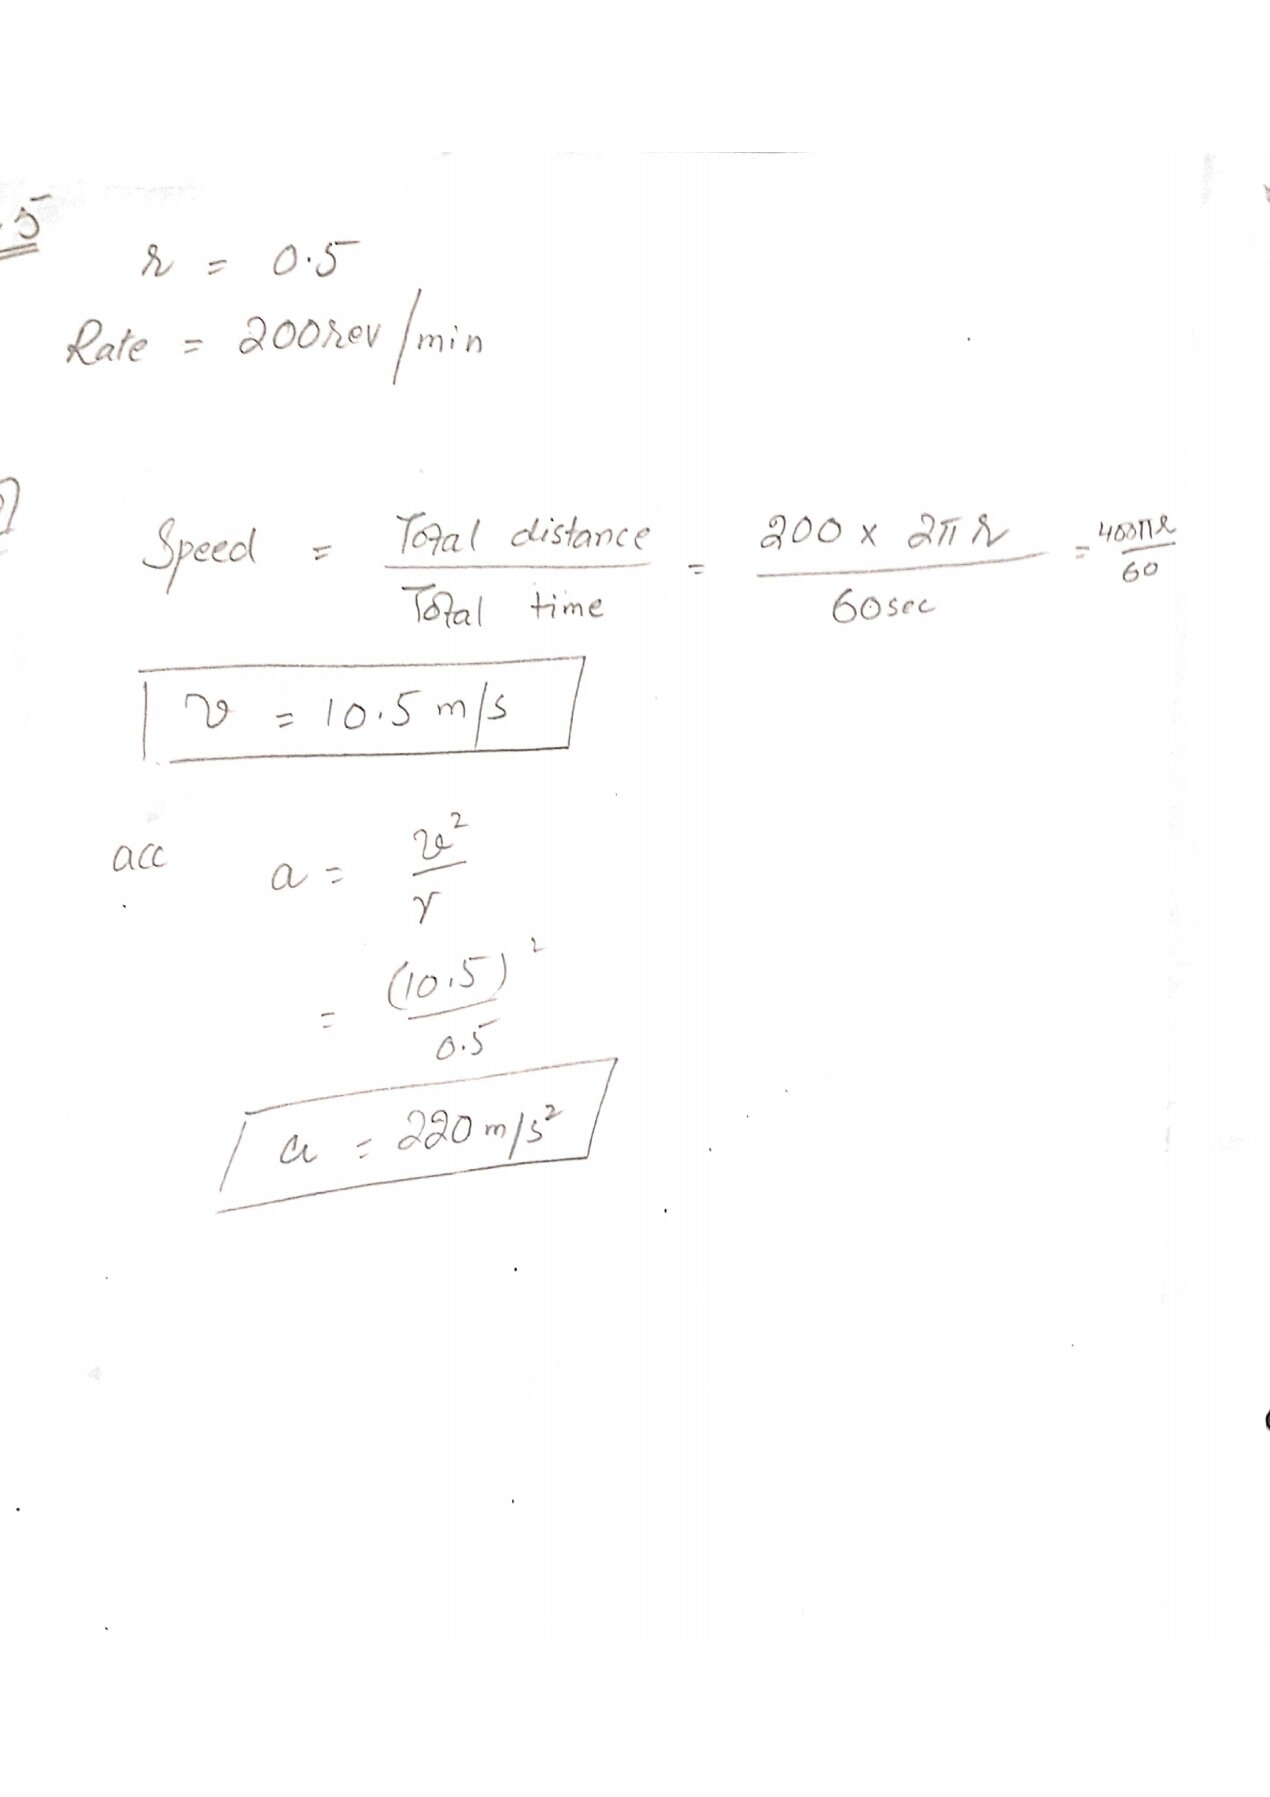 .5
r = 0.5
Rate = 200rev/min
Speed = Total distance / Total time = 200 x 2πr / 60sec = 400πr / 60
v = 10.5 m/s
acc a = v² / r
= (10.5)² / 0.5
a = 220 m/s²